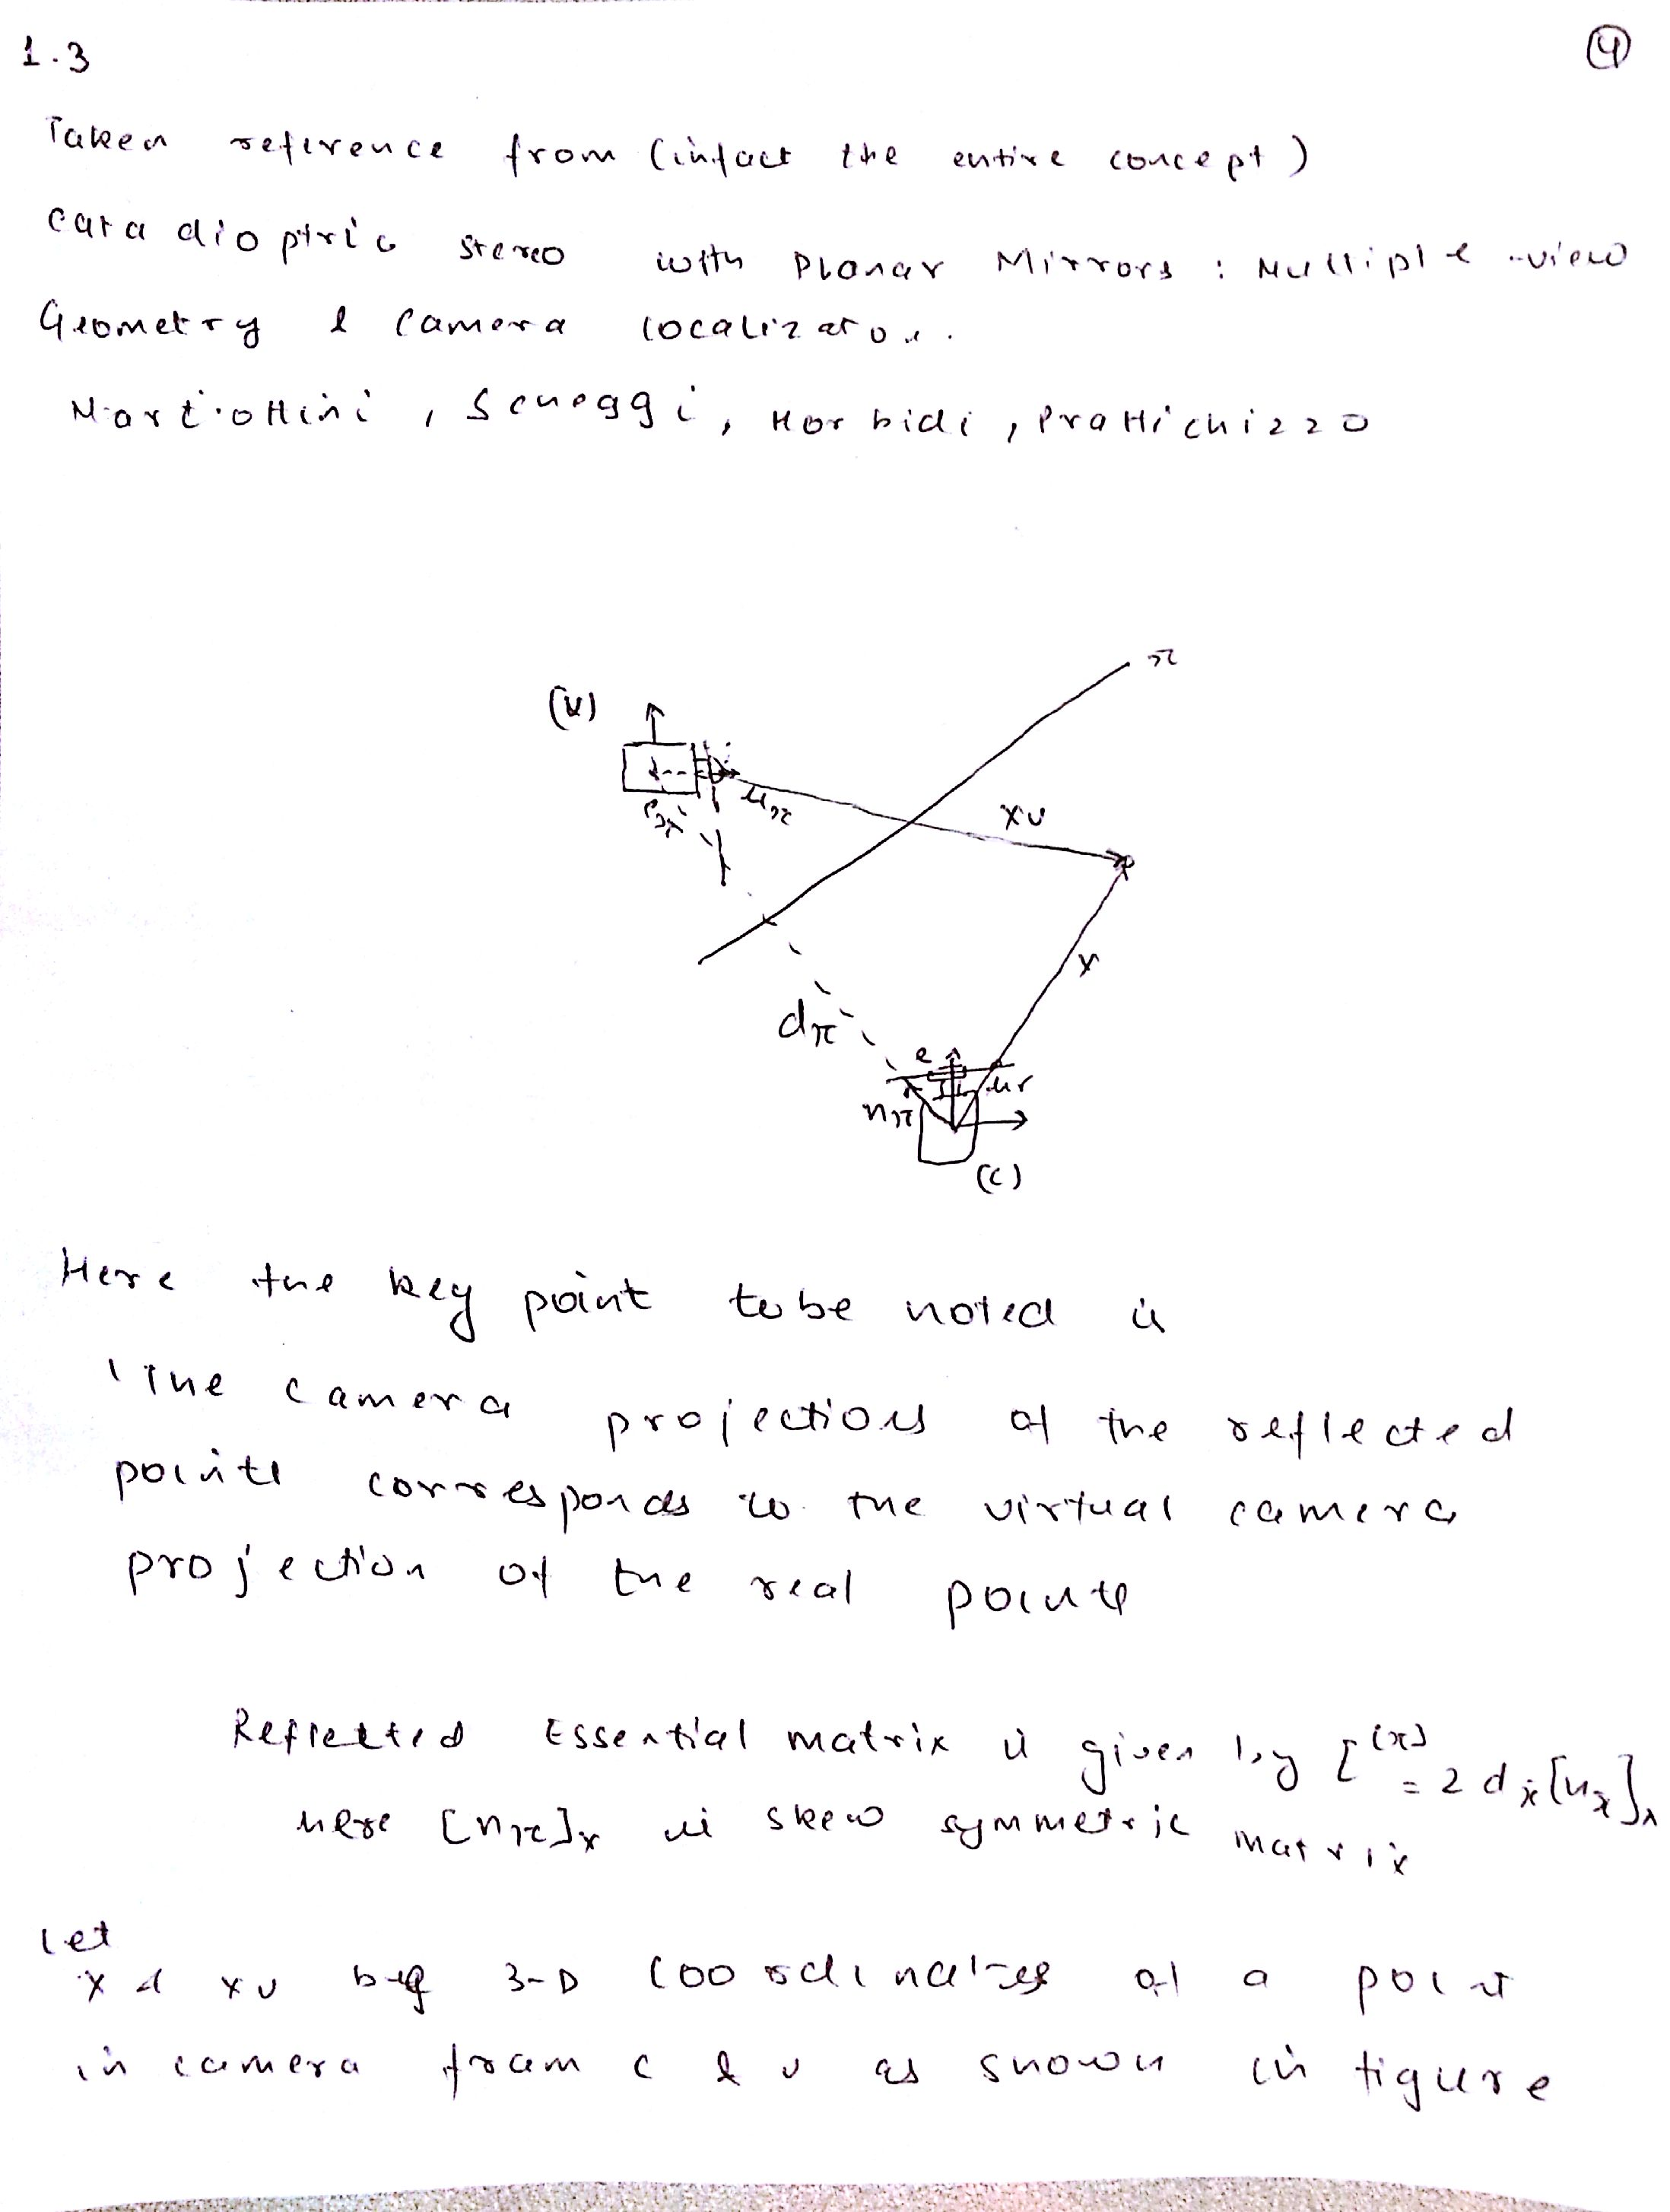 1.3
④
Taken reference from (infact the entire concept)
Catadioptric stereo with Planar Mirrors : Multiple-view
Geometry & Camera localization.
Mariottini, Scheggi, Morbidi, Prattichizzo
π
(v)
uπ
xv
x
dπ
e
ur
nπ
(c)
Here the key point to be noted is
' The camera projections of the reflected
points corresponds to the virtual camera
projection of the real points
Reflected Essential matrix is given by E^(π) = 2 dπ[nπ]x
here [nπ]x is skew symmetric matrix
let
x & xv be 3-D coordinates of a point
in camera fram c & v as shown in figure